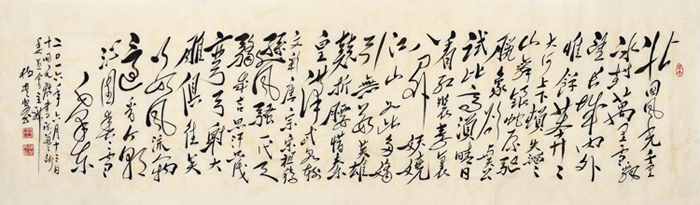 北国风光千里
冰封万里雪飘
望长城内外
惟余莽莽
大河上下顿失滔滔
山舞银蛇原驰
蜡象欲与天公
试比高须晴日
看红装素裹
分外妖娆
江山如此多娇
引无数英雄
竞折腰惜秦
皇汉武略输
文采唐宗宋祖稍
逊风骚一代天
骄成吉思汗只识
弯弓射大
雕俱往矣
数风流人物
还看今朝
沁园春雪
毛泽东
二〇一六年六月十三日